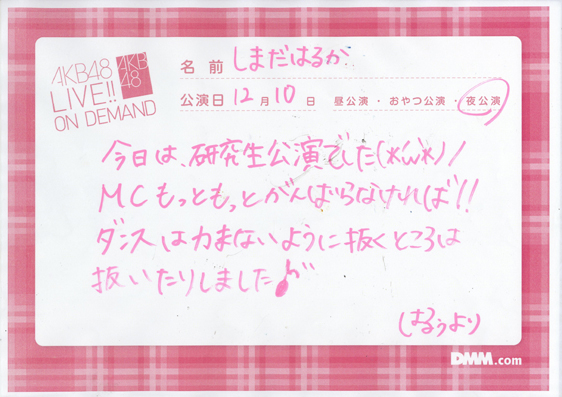 AKB48
LIVE!!
ON DEMAND
AKB
48
名前 しまだはるか
公演日 12月10日 昼公演・おやつ公演・夜公演
今日は、研究生公演でした(*'ω'*)ノ
MCもっともっとがんばらなければ!!
ダンスは力まないように抜くところは
抜いたりしました♪
はるぅより
DMM.com